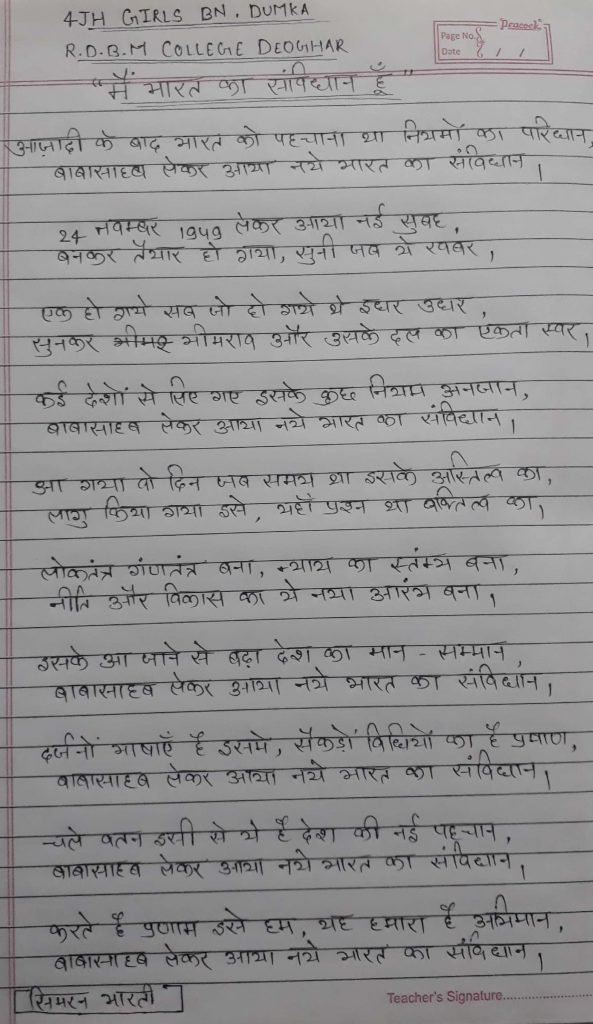 4JH GIRLS BN. DUMKA
R.D.B.M COLLEGE DEOGHAR
Peacock
Page No. 8
Date 8 / /
"मैं भारत का संविधान हूँ"
आज़ादी के बाद भारत को पहचाना था नियमों का परिधान,
बाबासाहब लेकर आया नये भारत का संविधान।
24 नवम्बर 1949 लेकर आया नई सुबह,
बनकर तैयार हो गया, सुनी जब ये खबर,
एक हो गये सब जो हो गये थे इधर उधर,
सुनकर भीमराव और उसके दल का एकता स्वर,
कई देशों से लिए गए इसके कुछ नियम अनजान,
बाबासाहब लेकर आया नये भारत का संविधान।
आ गया वो दिन जब समय था इसके अस्तित्व का,
लागु किया गया इसे, यहाँ प्रश्न था वक्तित्व का,
लोकतंत्र गंणतंत्र बना, न्याय का स्तंम्भ बना,
नीति और विकास का ये नया आरंभ बना,
इसके आ जाने से बढ़ा देश का मान - सम्मान,
बाबासाहब लेकर आया नये भारत का संविधान।
दर्जनों भाषाएँ है इसमे, सैकड़ों विधियों का है प्रमाण,
बाबासाहब लेकर आया नये भारत का संविधान।
चले वतन इसी से ये है देश की नई पहचान,
बाबासाहब लेकर आया नये भारत का संविधान।
करते है प्रणाम इसे हम, यह हमारा है अभिमान,
बाबासाहब लेकर आया नये भारत का संविधान।
सिमरन भारती
Teacher's Signature